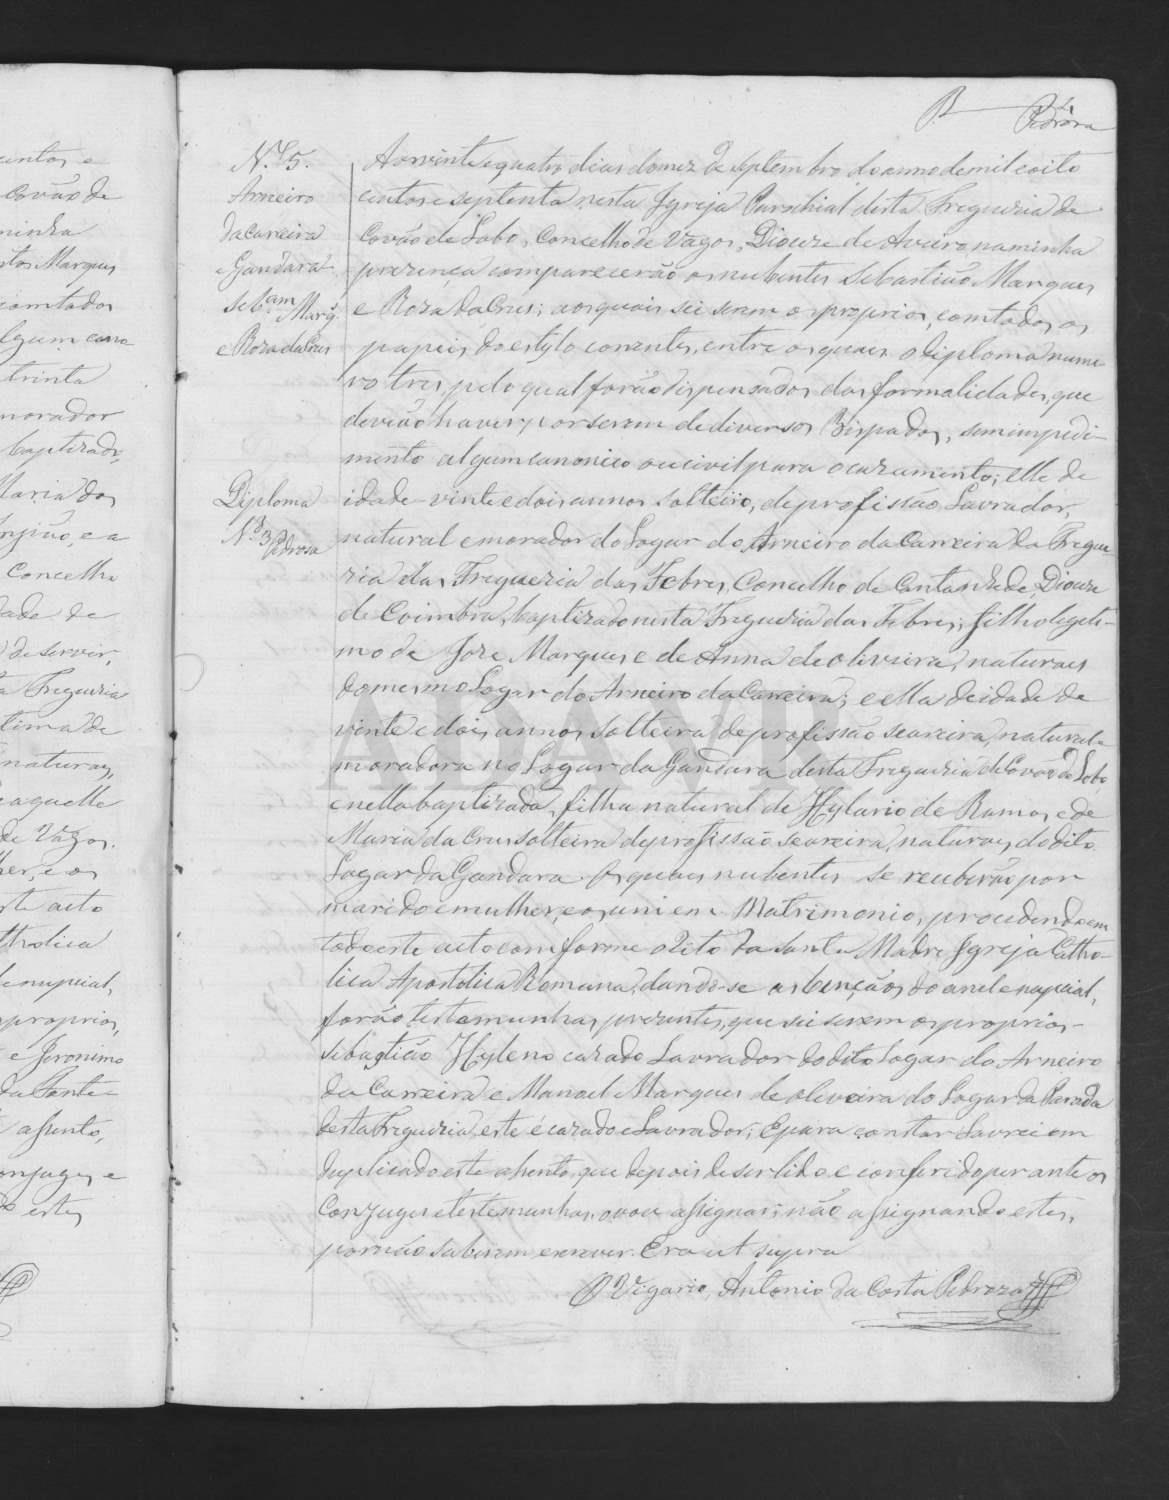 Pedroza
N.º 5.
Arneiro
da Carreira
e Gandara
Seb.am Marq.
e Roza da Crus
Aos vinte e quatro dias do mez de Septembro do anno de mil e oito
centos e septenta nesta Igreja Parochial desta Freguezia de
Covão de Lobo, Concelho de Vagos, Dioceze de Aveiro na minha
prezença comparecerão os nubentes Sebastião Marques
e Roza da Crus; aos quais sei serem os proprios, com todos os
papeis do estylo correntes, entre os quaes o diploma nume-
ro tres, pelo qual forão dispensados das formalidades, que
devião haver, por serem de diversos Bispados, sem impedi-
mento algum canonico ou civil para o cazamento; elle de
idade vinte e dois annos solteiro, de profissão Lavrador,
Diploma
N.º 3 Pedroza
natural e morador do Logar do Arneiro da Carreira da Fregue
zia das Freguezia das Febres, Concelho de Cantanhede, Dioceze
de Coimbra, baptizado nesta Freguezia das Febres; filho legiti-
mo de Joze Marques e de Anna de Oliveira, naturaes
do mesmo Logar do Arneiro da Carreira; e ella de idade de
vinte e dois annos solteira de profissão seareira, natural e
moradora no Logar da Gandara desta Freguezia de Covão do Lobo
e nella baptizada, filha natural de Hylario de Ramos e de
Maria da Crus solteira de profissão seareira, naturaes do dito
Logar da Gandara. Os quaes nubentes se receberão por
marido e mulher, e os uni em Matrimonio, procedendo em
todo este acto comforme o Rito da Santa Madre Igreja Catho-
lica Apostolica Romana, dando-se as bençãos do anel e nupcial,
forão testemunhas prezentes, que sei serem os proprios
Sebastião Hyleno cazado Lavrador do dito Logar do Arneiro
da Carreira e Manoel Marques de Oliveira do Logar da Parada
desta Freguezia, este é cazado e Lavrador; E para constar Lavrei em
duplicado este assento, que depois de ser lido e conferido perante os
Conjuges e testemunhas, o vou assignar; não assignando estes,
por não saberem escrever. Era ut supra
O Vigario, Antonio da Costa Pedroza
ADAVR